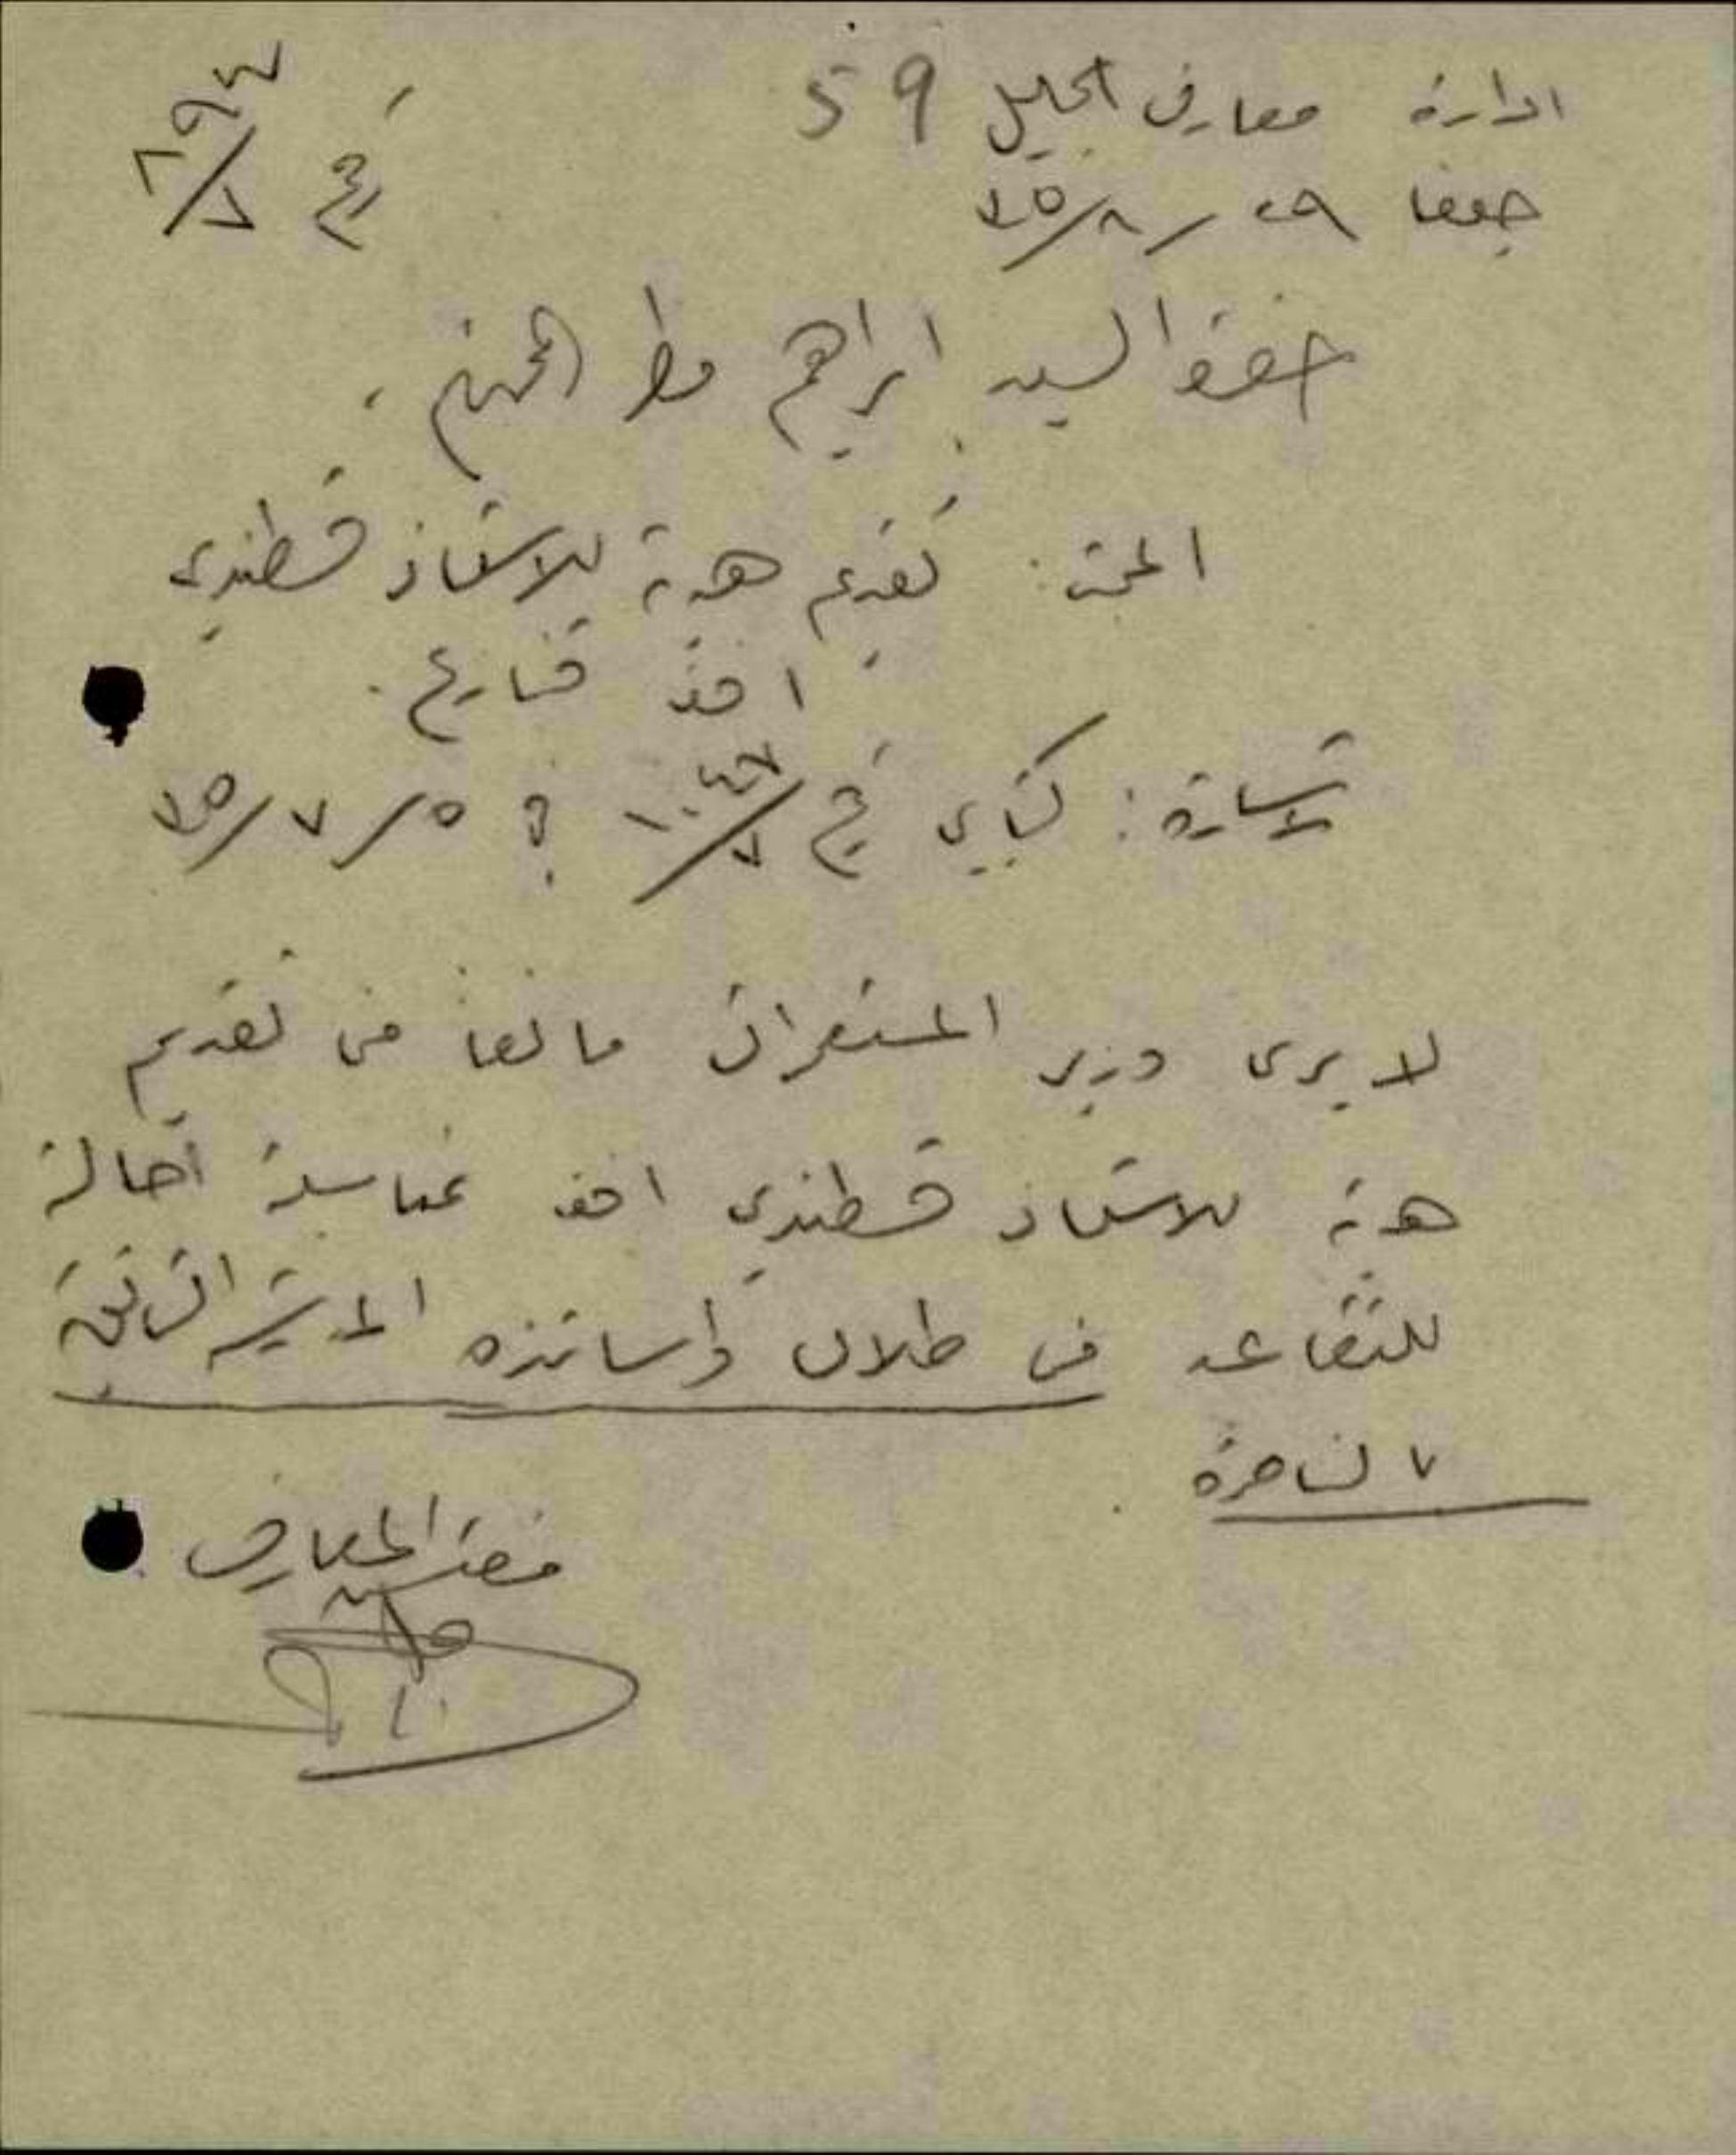 ادارة معارف الجليل 59
حيفا ٢٩ / ٨ / ٣٥
حضرة السيد ابراهيم مطر المحترم ،
المبحث : تقديم هدية للاستاذ قسطندي
افندي قنازع .
الاشارة : كتابي نمرة في ٥ / ٧ / ٣٥
لا يرى مدير المستعمرات مانعا من تقديم
هدية للاستاذ قسطندي افندي بمناسبة احالته
للتقاعد من طلاب واساتذه المدرسة الثانوية
بالناصرة .
مفتش المعارف